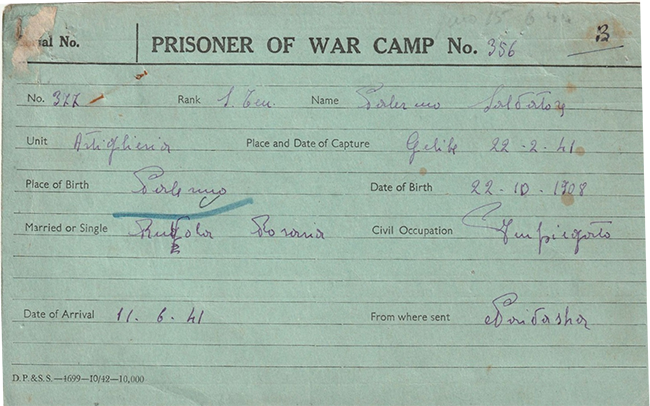 ial No. PRISONER OF WAR CAMP No. 356 B
No. 377 Rank S. Ten. Name Palermo Salvatore
Unit Artiglieria Place and Date of Capture 22-2-41
Place of Birth Palermo Date of Birth 22-10-1908
Married or Single Rosaria Civil Occupation Impiegato
Date of Arrival 11.6.41 From where sent
D.P.&S.S.—4699—10/42—10,000